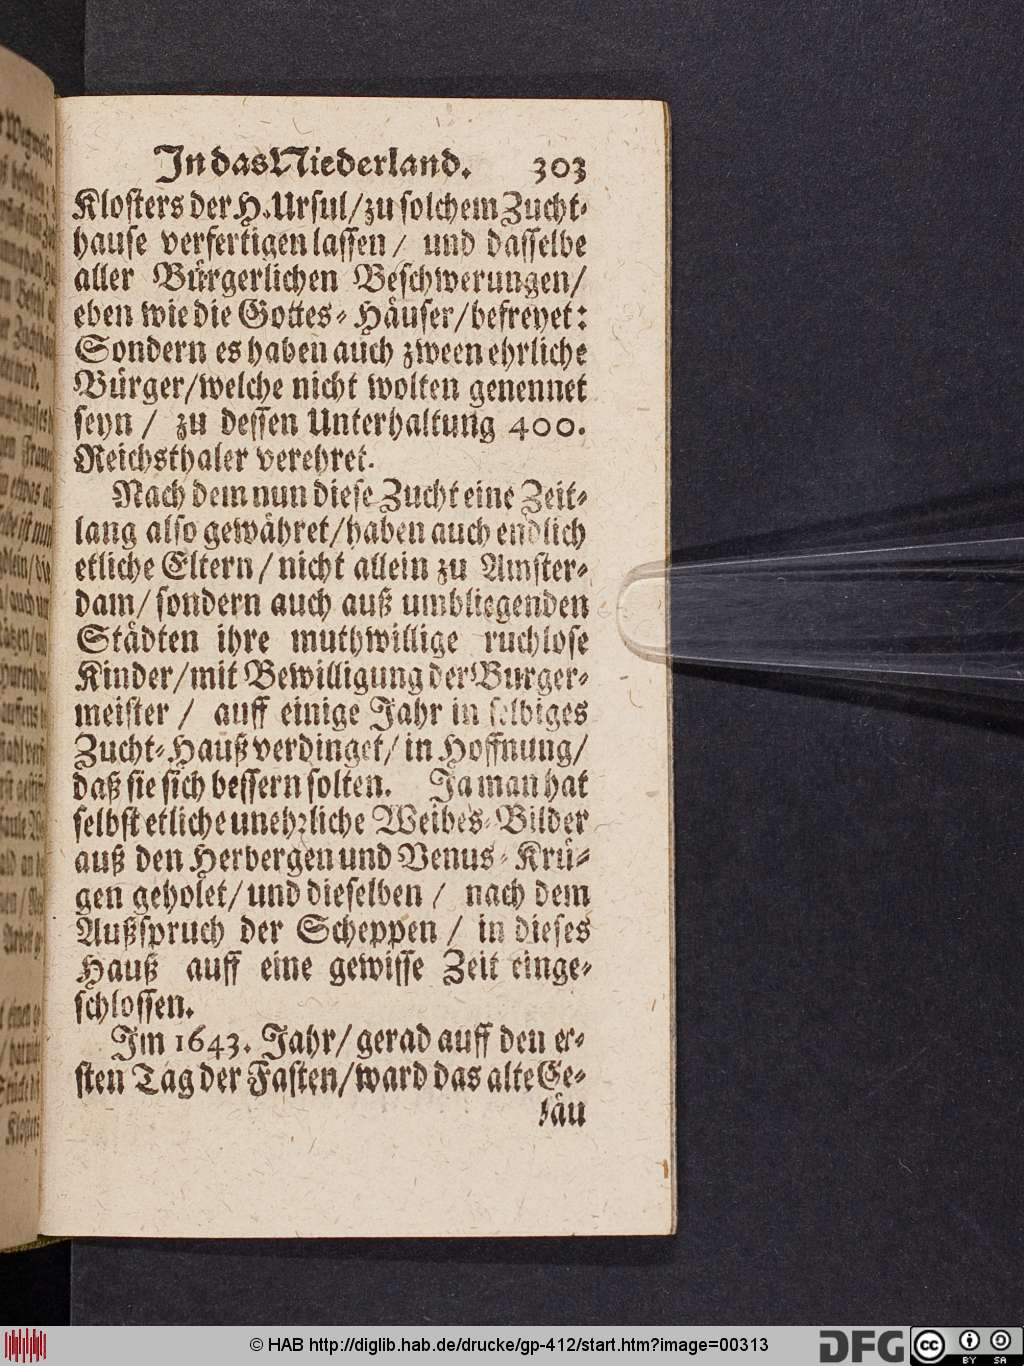 In das Niederland. 303
Klosters der H. Ursul/ zu solchem Zucht-
hause verfertigen lassen / und dasselbe
aller Bürgerlichen Beschwerungen/
eben wie die Gottes- Häuser/ befreyet:
Sondern es haben auch zween ehrliche
Bürger/ welche nicht wolten genennet
seyn / zu dessen Unterhaltung 400.
Reichsthaler verehret.
Nach dem nun diese Zucht eine Zeit-
lang also gewähret/ haben auch endlich
etliche Eltern / nicht allein zu Amster-
dam/ sondern auch auß umbliegenden
Städten ihre muthwillige ruchlose
Kinder/ mit Bewilligung der Burger-
meister / auff einige Jahr in selbiges
Zucht-Hauß verdinget/ in Hoffnung/
daß sie sich bessern solten. Ja man hat
selbst etliche unehrliche Weibes-Bilder
auß den Herbergen und Venus- Krü-
gen geholet/ und dieselben / nach dem
Außspruch der Scheppen / in dieses
Hauß auff eine gewisse Zeit einge-
schlossen.
Im 1643. Jahr/ gerad auff den er-
sten Tag der Fasten/ ward das alte Ge-
bäu
© HAB http://diglib.hab.de/drucke/gp-412/start.htm?image=00313
DFG
cc
BY SA